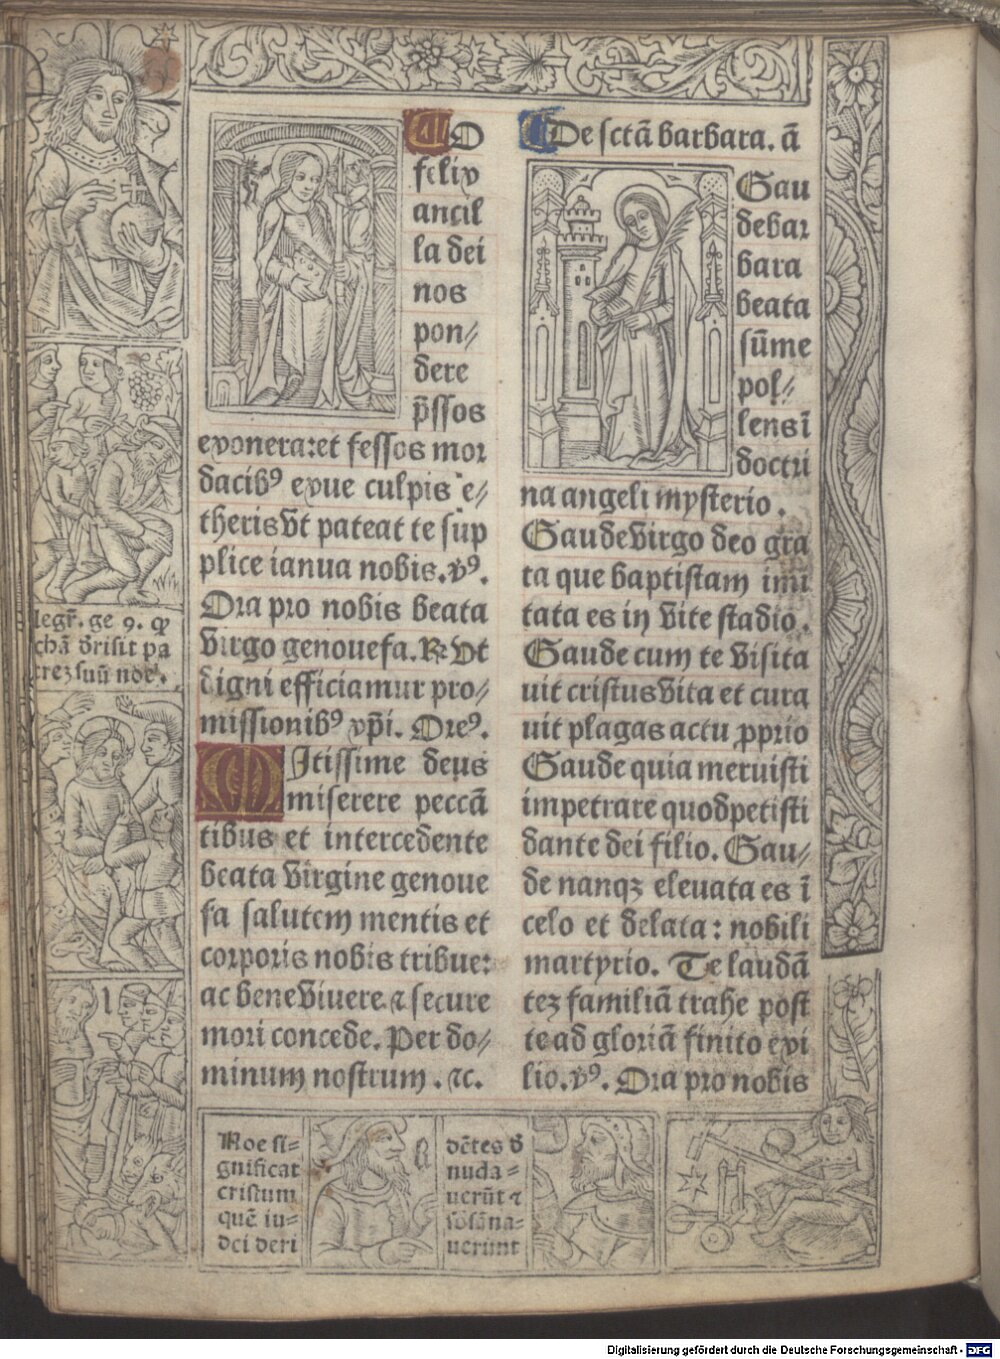 O
felix
ancil
la dei
nos
pon⸗
dere
p̄ssos
exoneraret fessos mor
dacibꝰ exue culpis e⸗
theris vt pateat te sup
plice ianua nobis. v̾ꝰ.
Ora pro nobis beata
virgo genouefa. ℞. vt
digni efficiamur pro⸗
missionibꝰ xp̄i. Oreꝰ.
MItissime deus
miserere peccā
tibus et intercedente
beata virgine genoue
fa salutem mentis et
corporis nobis tribue:
ac bene viuere ⁊ secure
mori concede. Per do⸗
minum nostrum. ⁊c.
De sctā barbara. ā
Gau
de bar
bara
beata
sūme
pol⸗
lens ī
doctri
na angeli mysterio.
Gaude virgo deo gra
ta que baptistam imi
tata es in vite stadio.
Gaude cum te visita
uit cristus vita et cura
uit plagas actu ꝓprio
Gaude quia meruisti
impetrare quod petisti
dante dei filio. Gau⸗
de nanqꝫ eleuata es ī
celo et delata: nobili
martyrio. Te laudā
teꝫ familiā trahe post
te ad gloriā finito exi
lio. v̾ꝰ. Ora pro nobis
legr̄. ge 9. ꝙ
chā drisit pa
treꝫ suū noe.
Noe si=
gnificat
cristum
quē iu=
dei deri
dētes d̄
nuda=
uerūt ⁊
uerunt
Digitalisierung gefördert durch die Deutsche Forschungsgemeinschaft - DFG